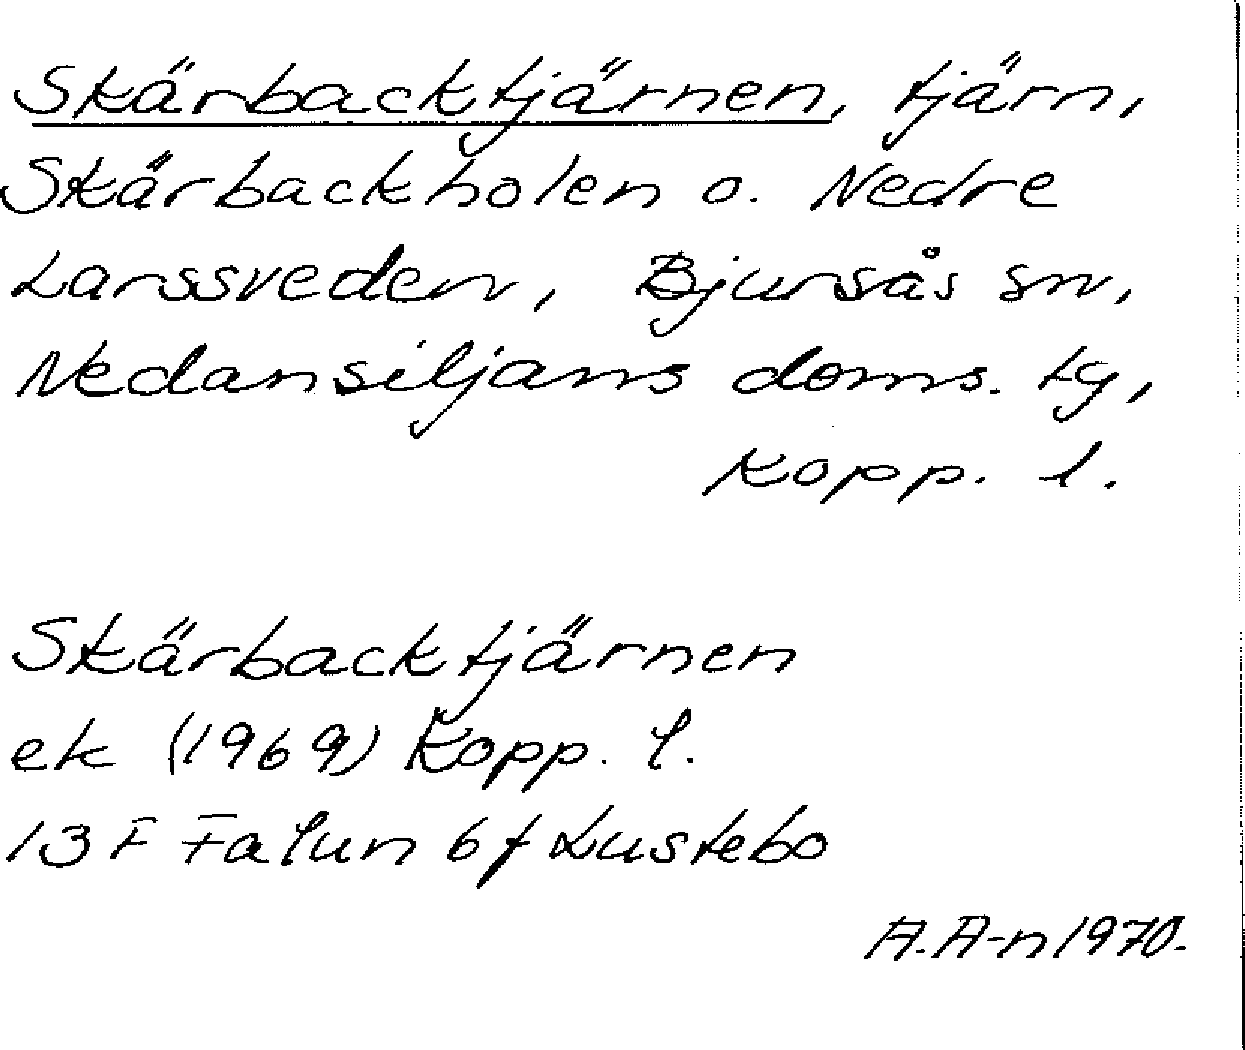 Skärbacktjärnen, tjärn,
Skärbackholen o. Nedre
Larssveden, Bjursås sn,
Nedansiljans doms. tg,
Kopp. l.
Skärbacktjärnen
ek (1969) Kopp. l.
13 F Falun 6 f Lustebo
A. A-n 1970.